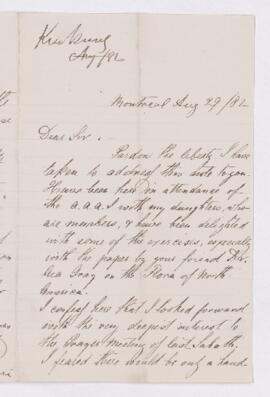 Aug/82
Montreal Aug 29/82
Dear Sir,
Pardon the liberty I have
taken to address this note to you.
I have been here in attendance of
the A.A.A.S with my daughters, who
are members, & have been delighted
with some of the exercises, especially
with the paper by your friend Dr.
Asa Gray on the Flora of North
America.
I confess here that I looked forward
with the very deepest interest to
the Prayer Meeting of last Sabbath.
I feared there would be only a hand-